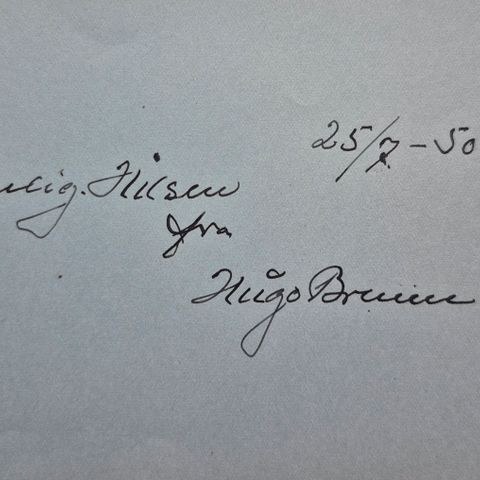 25/7 - 50
elig. Hilsen
fra
Hugo Bruun